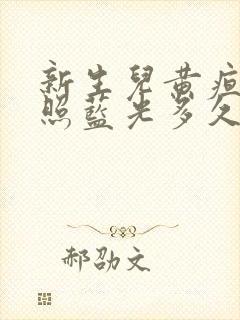 新生兒黃疸
照藍光多久
郝劭文